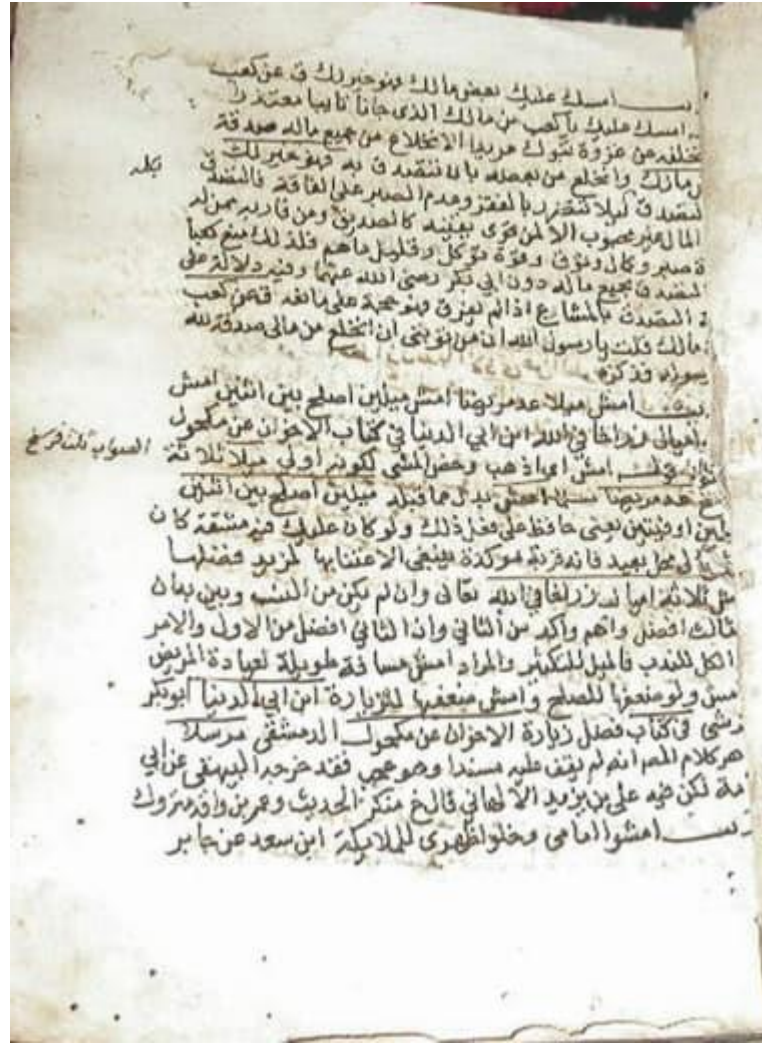 امسك عليك بعض مالك فهو خير لك ق عن كعب
امسك عليك يا كعب من مالك الذى جانا تايبا معتذرا
تخلفه عن غزوة تبوك مريدا الانخلاع من جميع ماله صدقة
وانخلع من بعضه بان تتصدق به فهو خير لك
بكله
ليلا تتضرر بالفقر وعدم الصبر على الفاقة فالتصدق
المال غير محبوب الا لمن قوى يقينه كالصديق ومن قاربه ممن له
صبر وكمال وثوق وقوة توكل وقليل ما هم فلذلك منع كعبا
التصدق بجميع ماله دون ابى بكر رضى الله عنهما وفيه دلالة على
التصدق بالمشاع اذا لم يعرف وهو حجة على مانعه ق عن كعب
مالك قلت يا رسول الله ان من توبتى ان انخلع من مالى صدقة لله
ورسوله فذكره
امش ميلا عد مريضا امش ميلين اصلح بين اثنين امش
اميال زر اخا في الله ابن ابي الدنيا في كتاب الاخوان عن مكحول
امش اى اذهب وخص المشى لكونه اولى ميلا ثلاثة
الصواب ثلث فرسخ
عد مريضا مسلما امش بدل مما قبله ميلين اصلح بين اثنين
او فئتين يعنى حافظ على فعل ذلك ولو كان عليك فيه مشقة كان
الى محل بعيد فانه قربة موكدة ينبغى الاعتنا بها لمزيد فضلها
امش ثلاثة اميال زر اخا في الله تعالى وان لم يكن من النسب وبين بهذا
الثالث افضل واهم واكد من الثاني وان الثاني افضل من الاول والامر
الكل للندب فالميل للتكثير والمراد امش مسافة طويلة لعيادة المريض
وامش ولو ضعفها للصلح وامش ضعفها للزيارة ابن ابي الدنيا ابو بكر
القرشى فى كتاب فضل زيارة الاخوان عن مكحول الدمشقى مرسلا
ظاهر كلام المص انه لم يقف عليه مسندا وهو عجيب فقد خرجه البيهقى عن ابي
امامة لكن فيه على بن يزيد الالهاني قال خ منكر الحديث وعمرو بن واقد متروك
امشوا امامى وخلوا ظهرى للملايكة ابن سعد عن جابر